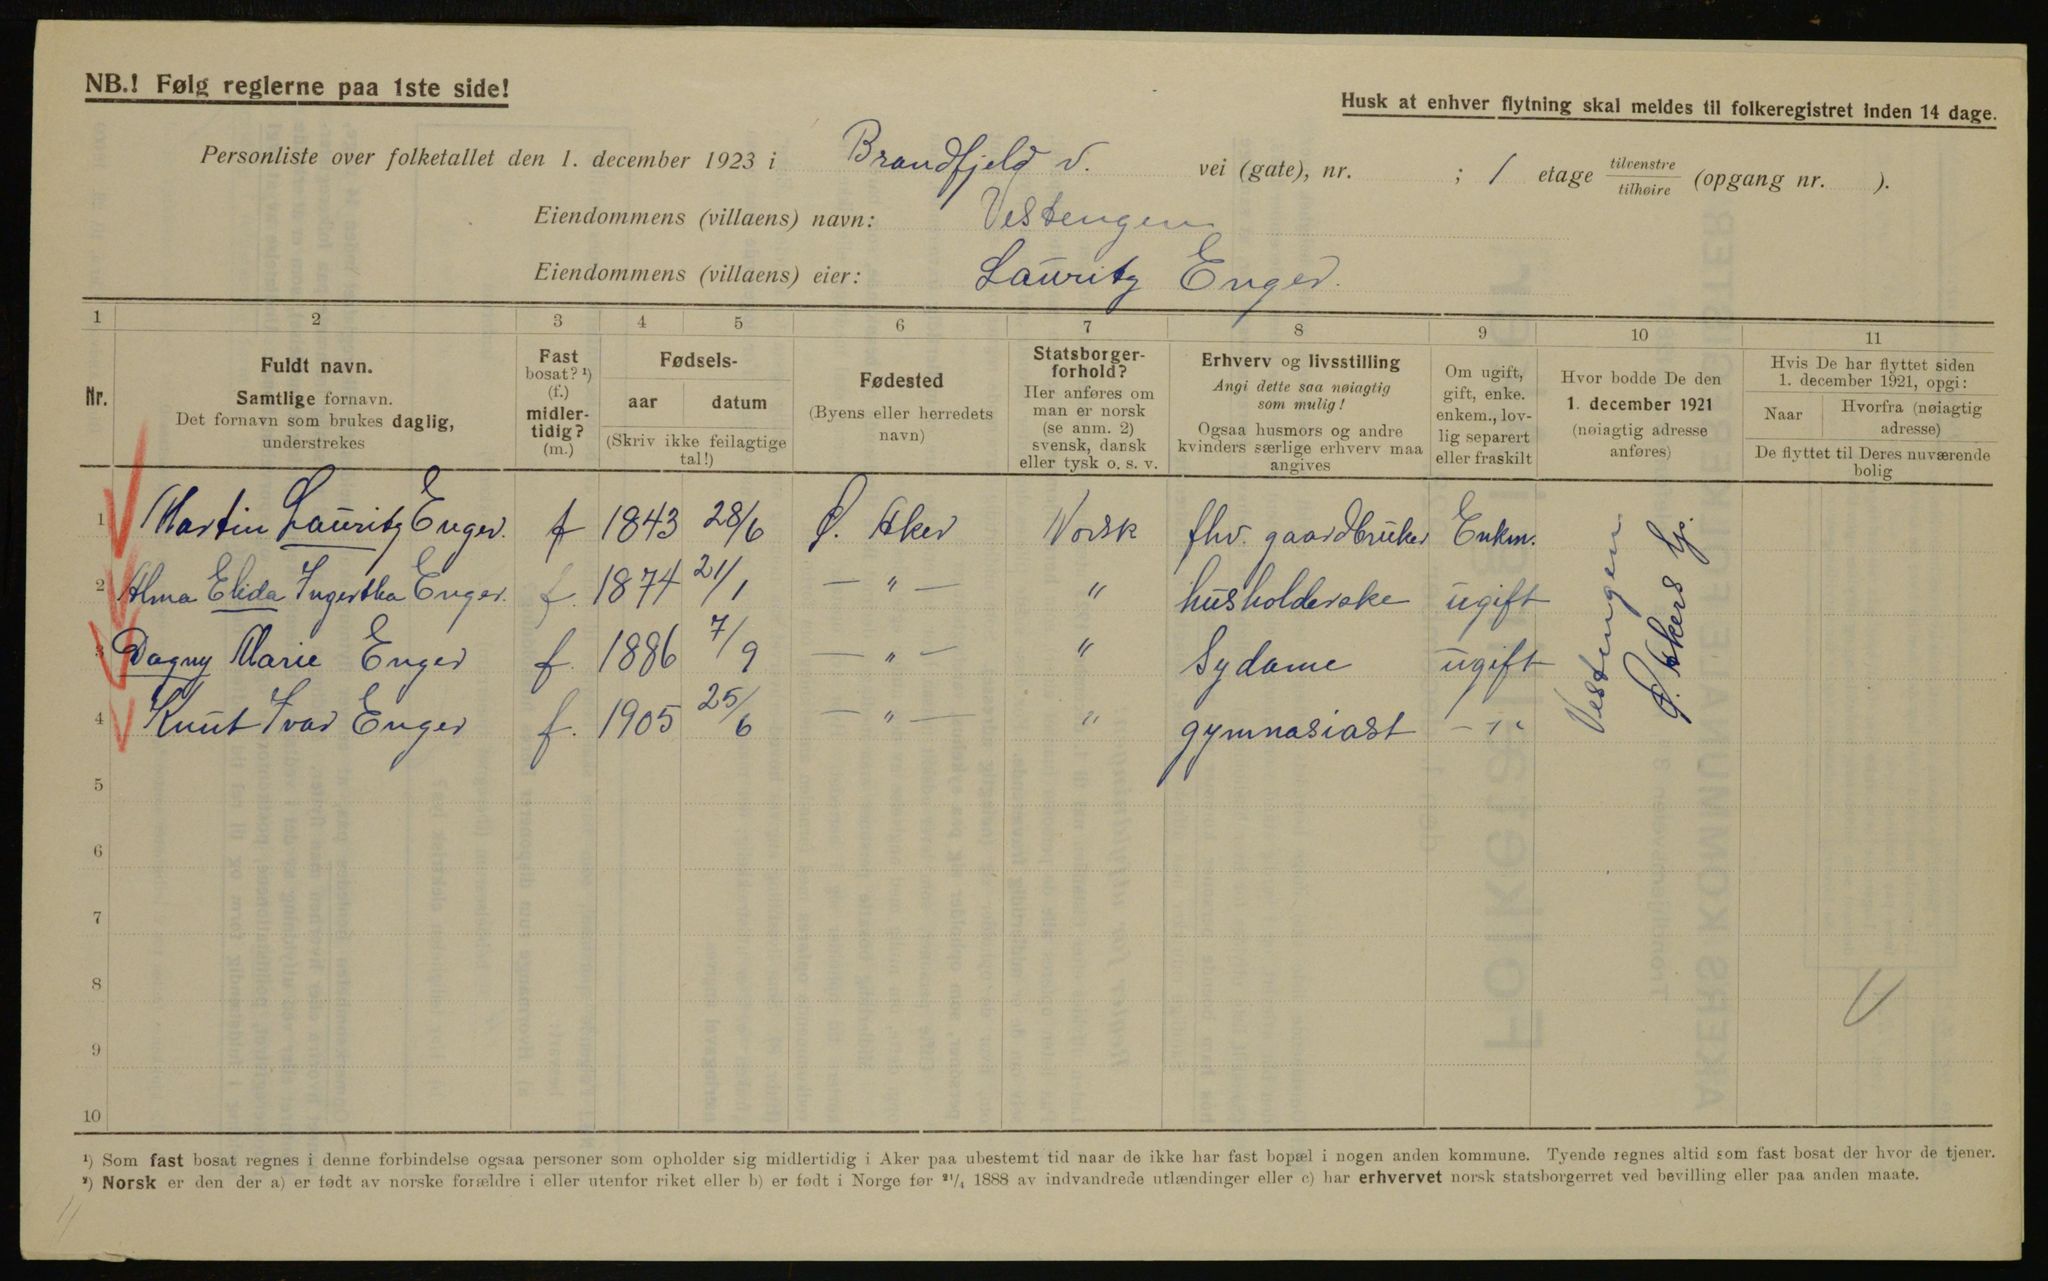 NB.! Følg reglerne paa 1ste side!
Husk at enhver flytning skal meldes til folkeregistret inden 14 dage.
Personliste over folketallet den 1. december 1923 i Brandfjeld v. vei (gate), nr. ; 1 etage tilvenstre/tilhøire (opgang nr. ).
Eiendommens (villaens) navn: Vestengen
Eiendommens (villaens) eier: Lauritz Enger.
1 2 3 4 5 6 7 8 9 10 11
Nr.
Fuldt navn.
Samtlige fornavn.
Det fornavn som brukes daglig,
understrekes
Fast
bosat? ¹)
(f.)
midler-
tidig?
(m.)
Fødsels-
aar datum
(Skriv ikke feilagtige
tal!)
Fødested
(Byens eller herredets
navn)
Statsborger-
forhold?
Her anføres om
man er norsk
(se anm. 2)
svensk, dansk
eller tysk o. s. v.
Erhverv og livsstilling
Angi dette saa nøiagtig
som mulig!
Ogsaa husmors og andre
kvinders særlige erhverv maa
angives
Om ugift,
gift, enke.
enkem., lov-
lig separert
eller fraskilt
Hvor bodde De den
1. december 1921
(nøiagtig adresse
anføres)
Hvis De har flyttet siden
1. december 1921, opgi:
Naar Hvorfra (nøiagtig
adresse)
De flyttet til Deres nuværende
bolig
1 Martin Lauritz Enger. f 1843 28/6 Ø. Aker Norsk fhv. gaardbruker Enkm.
2 Alma Elida Ingertha Enger. f. 1874 21/1 — " — " husholderske ugift
3 Dagny Marie Enger f. 1886 7/9 — " — " Sydame ugift
4 Knut Ivar Enger f. 1905 25/6 — " — " gymnasiast — " —
Vestengen
Ø. Akers
5
6
7
8
9
10
¹) Som fast bosat regnes i denne forbindelse ogsaa personer som opholder sig midlertidig i Aker paa ubestemt tid naar de ikke har fast bopæl i nogen anden kommune. Tyende regnes altid som fast bosat der hvor de tjener.
²) Norsk er den der a) er født av norske forældre i eller utenfor riket eller b) er født i Norge før ²¹/₄ 1888 av indvandrede utlændinger eller c) har erhvervet norsk statsborgerret ved bevilling eller paa anden maate.